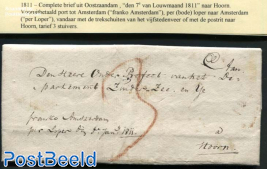 1811 - Complete brief uit Oostzaandam , "den 7e van Louwmaand 1811" naar Hoorn
Vooruitbetaald port tot Amsterdam ("franko Amsterdam"), per (bode) loper naar Amsterdam
("per Loper"), vandaar met de trekschuiten van het vijfstedenveer of met de postrit naar
Hoorn, tarief 3 stuivers.
@ Aan
Den Heere Onder Prefect van het De-
partement Zuider Zee en
3
franko Amsterdam
a
pr Loper
Hoorn
PostBeeld.com
PostBeeld.com
PostBeeld.com